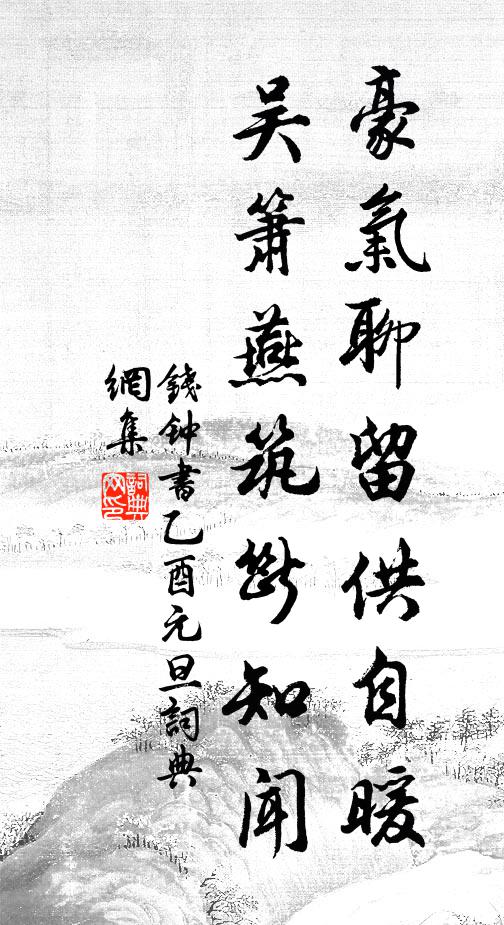 豪氣聊留供自暖
吳簫燕筑斷知聞
錢钟書乙酉元旦詞典
網集
詞典
网印